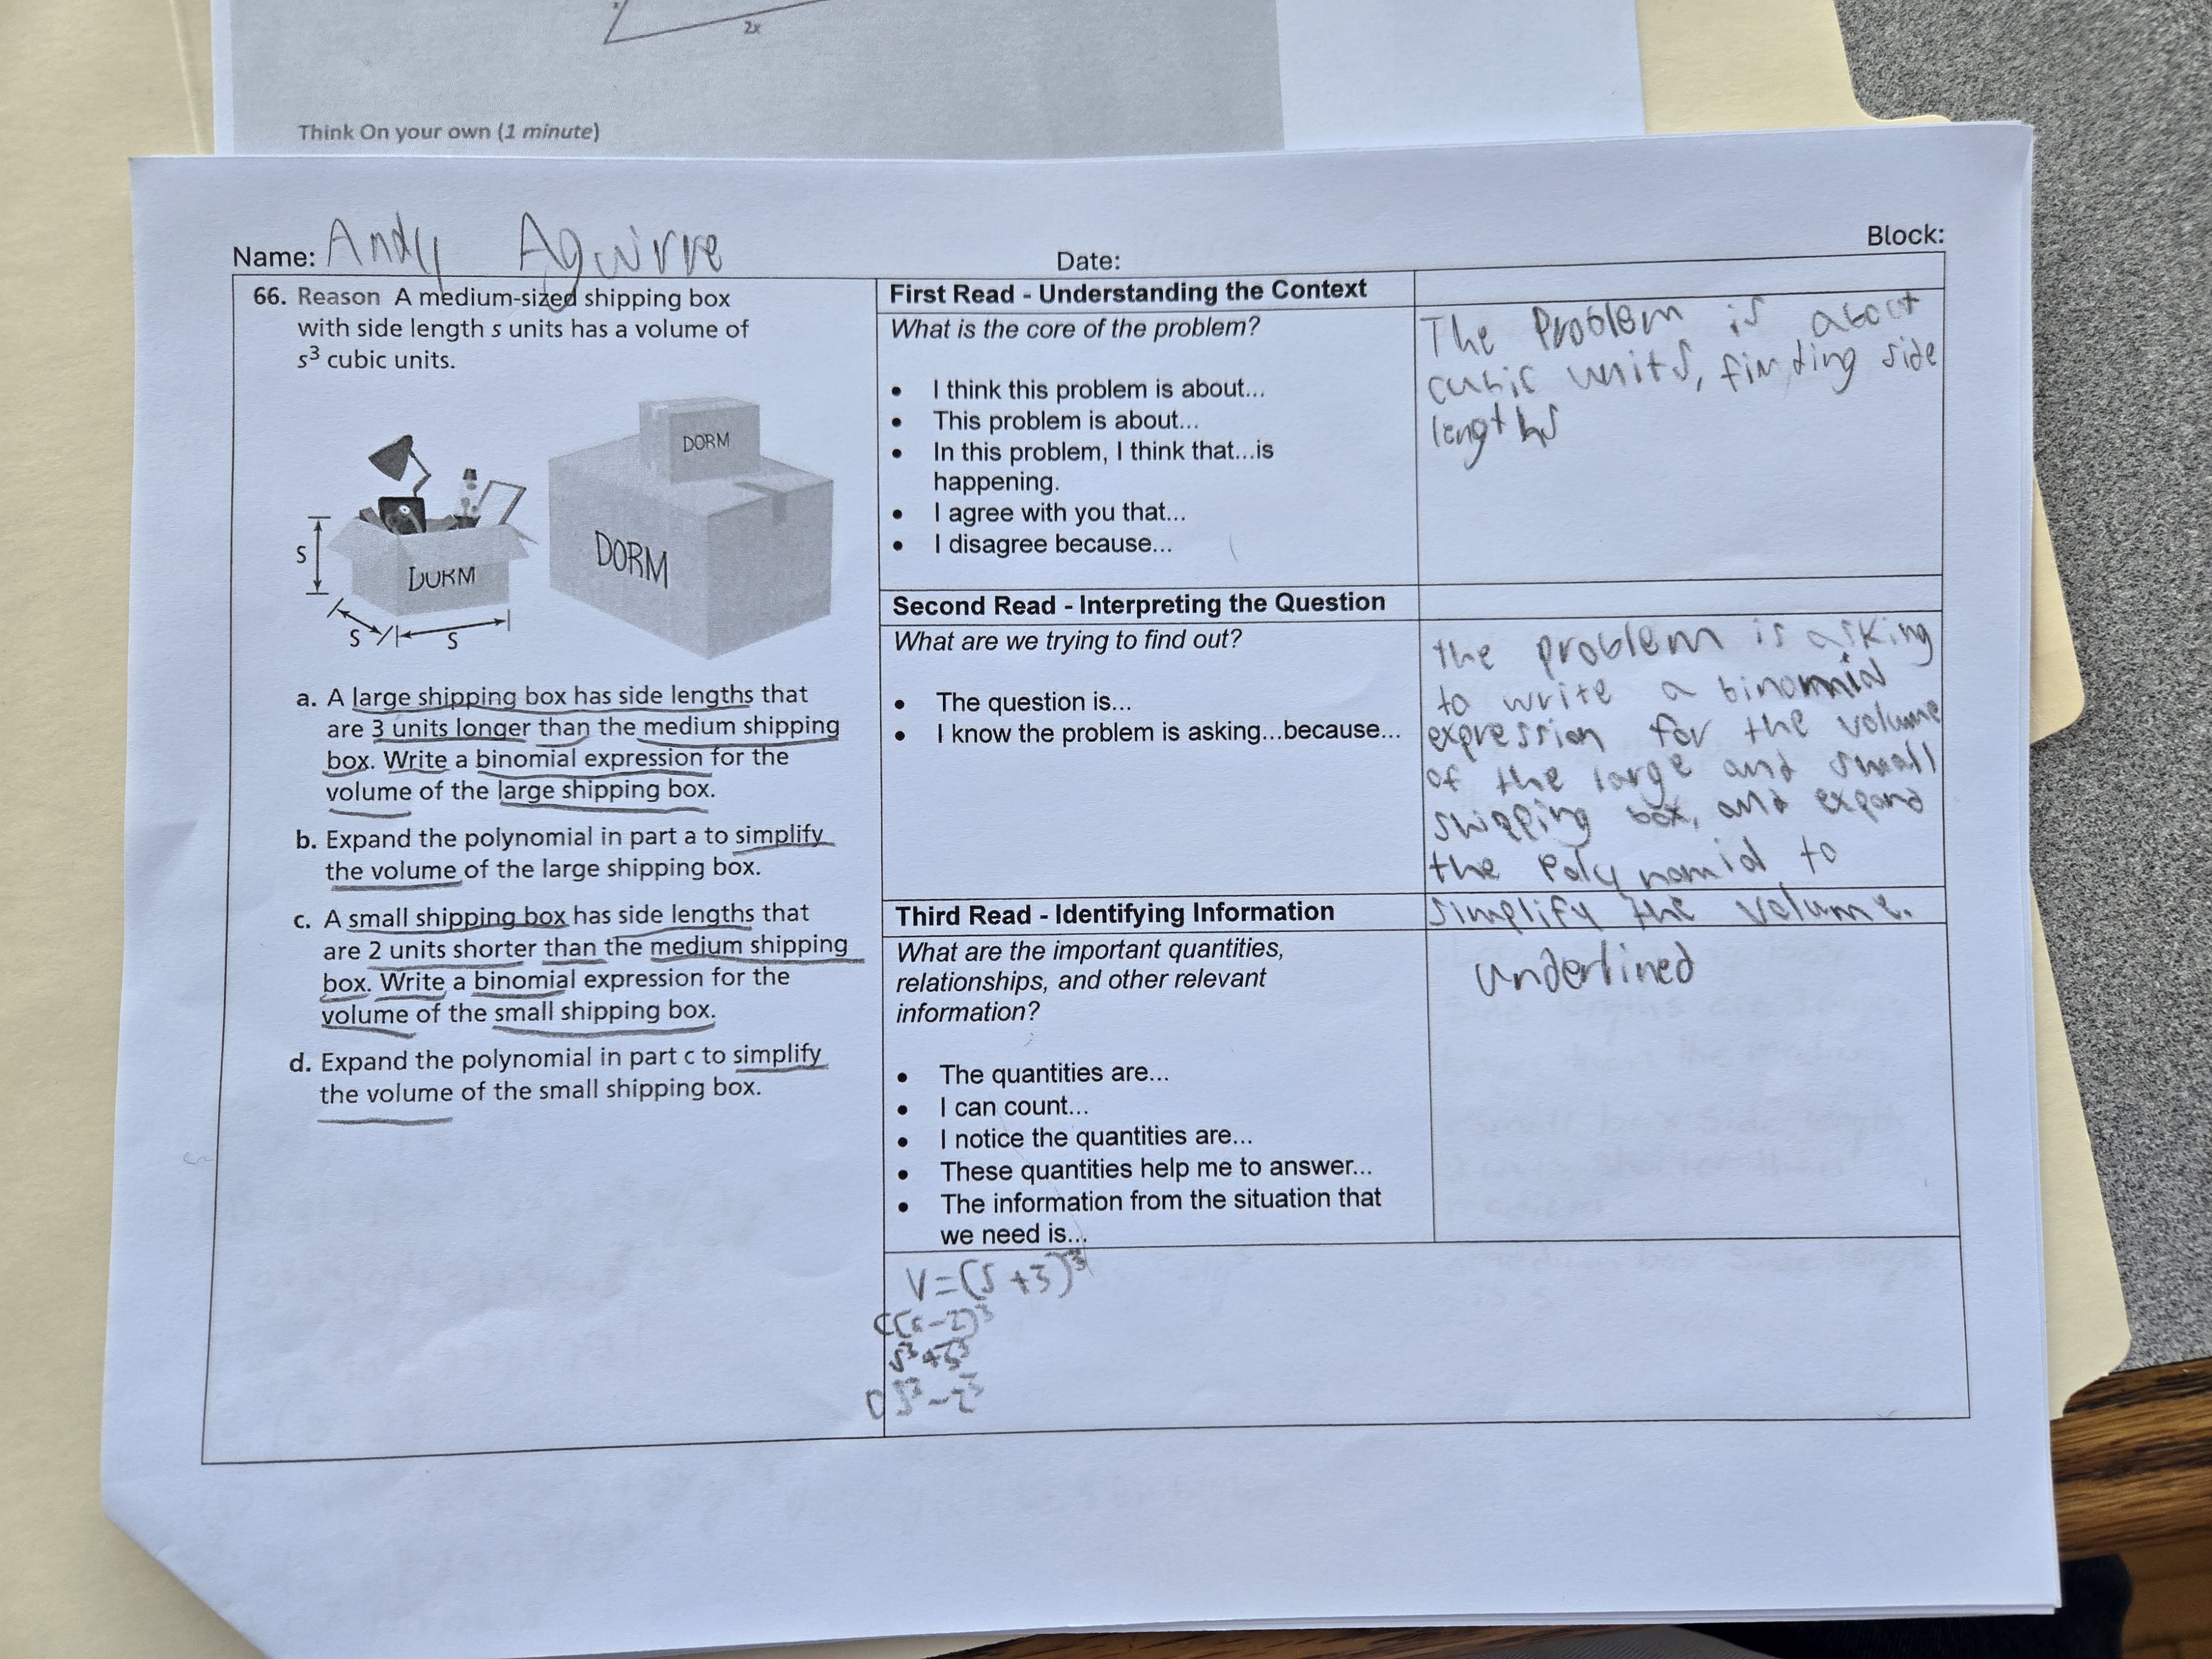 Think On your own (1 minute)
2x
Name: Andy Aguirre Date: Block:
66. Reason A medium-sized shipping box
with side length s units has a volume of
s³ cubic units.
s
s
s
DORM
DORM
DORM
a. A large shipping box has side lengths that
are 3 units longer than the medium shipping
box. Write a binomial expression for the
volume of the large shipping box.
b. Expand the polynomial in part a to simplify
the volume of the large shipping box.
c. A small shipping box has side lengths that
are 2 units shorter than the medium shipping
box. Write a binomial expression for the
volume of the small shipping box.
d. Expand the polynomial in part c to simplify
the volume of the small shipping box.
First Read - Understanding the Context
What is the core of the problem?
• I think this problem is about...
• This problem is about....
• In this problem, I think that...is
happening.
• I agree with you that...
• I disagree because...
The Problem is about
cubic units, finding side
lengths
Second Read - Interpreting the Question
What are we trying to find out?
• The question is...
• I know the problem is asking...because...
the problem is asking
to write a binomial
expression for the volume
of the large and small
shipping box, and expand
the polynomial to
simplify the volume.
Third Read - Identifying Information
What are the important quantities,
relationships, and other relevant
information?
• The quantities are...
• I can count...
• I notice the quantities are...
• These quantities help me to answer...
• The information from the situation that
we need is...
underlined
V=(s+3)³
(s-2)³